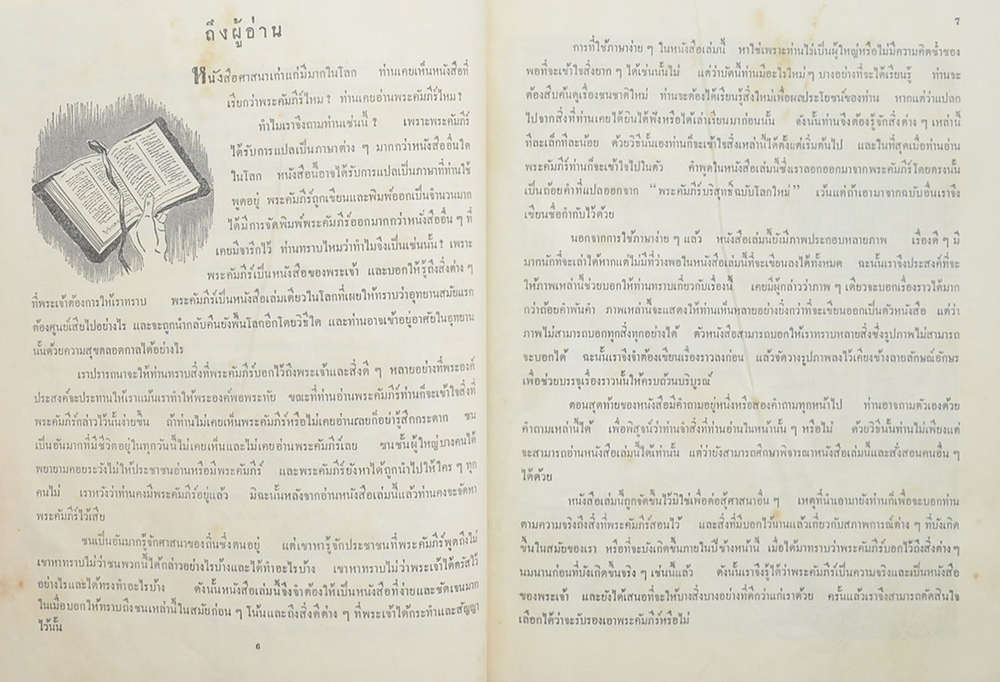 ถึงผู้อ่าน
หนังสือศาสนาเก่าแก่มีมากในโลก ท่านเคยเห็นหนังสือที่
เรียกว่าพระคัมภีร์ไหม? ท่านเคยอ่านพระคัมภีร์ไหม?
ทำไมเราจึงถามท่านเช่นนี้? เพราะพระคัมภีร์
ได้รับการแปลเป็นภาษาต่าง ๆ มากกว่าหนังสืออื่นใด
ในโลก หนังสือนี้อาจได้รับการแปลเป็นภาษาที่ท่านใช้
พูดอยู่ พระคัมภีร์ถูกเขียนและพิมพ์ออกเป็นจำนวนมาก
ได้มีการจัดพิมพ์พระคัมภีร์ออกมากกว่าหนังสืออื่น ๆ ที่
เคยมีจารึกไว้ ท่านทราบไหมว่าทำไมจึงเป็นเช่นนั้น? เพราะ
พระคัมภีร์เป็นหนังสือของพระเจ้า และบอกให้รู้ถึงสิ่งต่าง ๆ
ที่พระเจ้าต้องการให้เราทราบ พระคัมภีร์เป็นหนังสือเล่มเดียวในโลกที่เผยให้ทราบว่าอุทยานสมัยแรก
ต้องศูนย์เสียไปอย่างไร และจะถูกนำกลับคืนยังพื้นโลกอีกโดยวิธีใด และท่านอาจเข้าอยู่อาศัยในอุทยาน
นั้นด้วยความสุขตลอดกาลได้อย่างไร
เราปรารถนาจะให้ท่านทราบสิ่งที่พระคัมภีร์บอกไว้ถึงพระเจ้าและสิ่งดี ๆ หลายอย่างที่พระองค์
ประสงค์จะประทานให้เราแม้นเราทำให้พระองค์พอพระทัย ขณะที่ท่านอ่านพระคัมภีร์ท่านก็จะเข้าใจสิ่งที่
พระคัมภีร์กล่าวไว้นั้นง่ายขึ้น ถ้าท่านไม่เคยเห็นพระคัมภีร์หรือไม่เคยอ่านเลยก็อย่ารู้สึกกระดาก ชน
เป็นอันมากที่มีชีวิตอยู่ในทุกวันนี้ไม่เคยเห็นและไม่เคยอ่านพระคัมภีร์เลย ชนชั้นผู้ใหญ่บางคนได้
พยายามคอยระวังไม่ให้ประชาชนอ่านหรือมีพระคัมภีร์ และพระคัมภีร์ยังหาได้ถูกนำไปให้ใคร ๆ ทุก
คนไม่ เราหวังว่าท่านคงมีพระคัมภีร์อยู่แล้ว มิฉะนั้นหลังจากอ่านหนังสือเล่มนี้แล้วท่านคงจะจัดหา
พระคัมภีร์ไว้เสีย
ชนเป็นอันมากรู้จักศาสนาของถิ่นซึ่งตนอยู่ แต่เขาหารู้จักประชาชนที่พระคัมภีร์พูดถึงไม่
เขาหาทราบไม่ว่าชนพวกนี้ได้กล่าวอย่างไรบ้างและได้ทำอะไรบ้าง เขาหาทราบไม่ว่าพระเจ้าได้ตรัสไว้
อย่างไรและได้ทรงทำอะไรบ้าง ดังนั้นหนังสือเล่มนี้จึงจำต้องให้เป็นหนังสือที่ง่ายและชัดเจนมาก
ในเมื่อบอกให้ทราบถึงชนเหล่านี้ในสมัยก่อน ๆ โน้นและถึงสิ่งดีต่าง ๆ ที่พระเจ้าได้กระทำและสัญญา
ไว้นั้น
6
7
การที่ใช้ภาษาง่าย ๆ ในหนังสือเล่มนี้ หาใช่เพราะท่านไร่เป็นผู้ใหญ่หรือไม่มีความคิดช่ำชอง
พอที่จะเข้าใจสิ่งยาก ๆ ได้เช่นนั้นไม่ แต่ว่าบัดนี้ท่านมีอะไรใหม่ๆ บางอย่างที่จะได้เรียนรู้ ท่านจะ
ต้องสืบค้นดูเรื่องชนชาติใหม่ ท่านจะต้องได้เรียนรู้สิ่งใหม่เพื่อผลประโยชน์ของท่าน หากแต่ว่าแปลก
ไปจากสิ่งที่ท่านเคยได้ยินได้ฟังหรือได้เล่าเรียนมาก่อนนั้น ดังนั้นท่านจึงต้องรู้จักสิ่งต่าง ๆ เหล่านี้
ทีละเล็กทีละน้อย ด้วยวิธีนั้นเองท่านก็จะเข้าใจสิ่งเหล่านี้ได้ตั้งแต่เริ่มต้นไป และในที่สุดเมื่อท่านอ่าน
พระคัมภีร์ท่านก็จะเข้าใจไปในตัว คำพูดในหนังสือเล่มนี้ซึ่งเราลอกออกมาจากพระคัมภีร์โดยตรงนั้น
เป็นถ้อยคำที่แปลออกจาก “พระคัมภีร์บริสุทธิ์ฉบับโลกใหม่” เว้นแต่ถ้าเอามาจากฉบับอื่นเราจึง
เขียนชื่อกำกับไว้ด้วย
นอกจากการใช้ภาษาง่าย ๆ แล้ว หนังสือเล่มนี้ยังมีภาพประกอบหลายภาพ เรื่องดี ๆ มี
มากนักที่จะเล่าได้หากแต่ไม่มีที่ว่างพอในหนังสือเล่มนี้ที่จะเขียนลงได้ทั้งหมด ฉะนั้นเราจึงประสงค์ที่จะ
ให้ภาพเหล่านี้ช่วยบอกให้ท่านทราบเกี่ยวกับเรื่องนี้ เคยมีผู้กล่าวว่าภาพ ๆ เดียวจะบอกเรื่องราวได้มาก
กว่าถ้อยคำพันคำ ภาพเหล่านี้จะแสดงให้ท่านเห็นหลายอย่างยิ่งกว่าที่จะเขียนออกเป็นตัวหนังสือ แต่ว่า
ภาพไม่สามารถบอกทุกสิ่งทุกอย่างได้ ตัวหนังสือสามารถบอกให้เราทราบหลายสิ่งซึ่งรูปภาพไม่สามารถ
จะบอกได้ ฉะนั้นเราจึงจำต้องเขียนเรื่องราวลงก่อน แล้วจัดวางรูปภาพลงไว้เคียงข้างลายลักษณ์อักษร
เพื่อช่วยบรรจุเรื่องราวนั้นให้ครบถ้วนบริบูรณ์
ตอนสุดท้ายของหนังสือมีคำถามอยู่หนึ่งหรือสองคำถามทุกหน้าไป ท่านอาจถามตัวเองด้วย
คำถามเหล่านี้ได้ เพื่อพิสูจน์ว่าท่านจำสิ่งที่ท่านอ่านในหน้านั้น ๆ หรือไม่ ด้วยวิธีนั้นท่านไม่เพียงแต่
จะสามารถอ่านหนังสือเล่มนี้ได้เท่านั้น แต่ว่ายังสามารถศึกษาพิจารณาหนังสือเล่มนี้และสั่งสอนคนอื่น ๆ
ได้ด้วย
หนังสือเล่มนี้ถูกจัดขึ้นไว้มิใช่เพื่อต่อสู้ศาสนาอื่น ๆ เหตุที่นำเอามายังท่านก็เพื่อจะบอกท่าน
ตามความจริงถึงสิ่งที่พระคัมภีร์สอนไว้ และสิ่งที่มีบอกไว้นานแล้วเกี่ยวกับสภาพการณ์ต่าง ๆ ที่บังเกิด
ขึ้นในสมัยของเรา หรือที่จะบังเกิดขึ้นภายในปีข้างหน้านี้ เมื่อได้มาทราบว่าพระคัมภีร์บอกไว้ถึงสิ่งต่าง ๆ
นมนานก่อนที่บังเกิดขึ้นจริง ๆ เช่นนี้แล้ว ดังนั้นเราจึงรู้ได้ว่าพระคัมภีร์เป็นความจริงและเป็นหนังสือ
ของพระเจ้า และยังได้เสนอที่จะให้บางสิ่งบางอย่างที่ดีกว่าแก่เราด้วย ครั้นแล้วเราจึงสามารถตัดสินใจ
เลือกได้ว่าจะรับรองเอาพระคัมภีร์หรือไม่